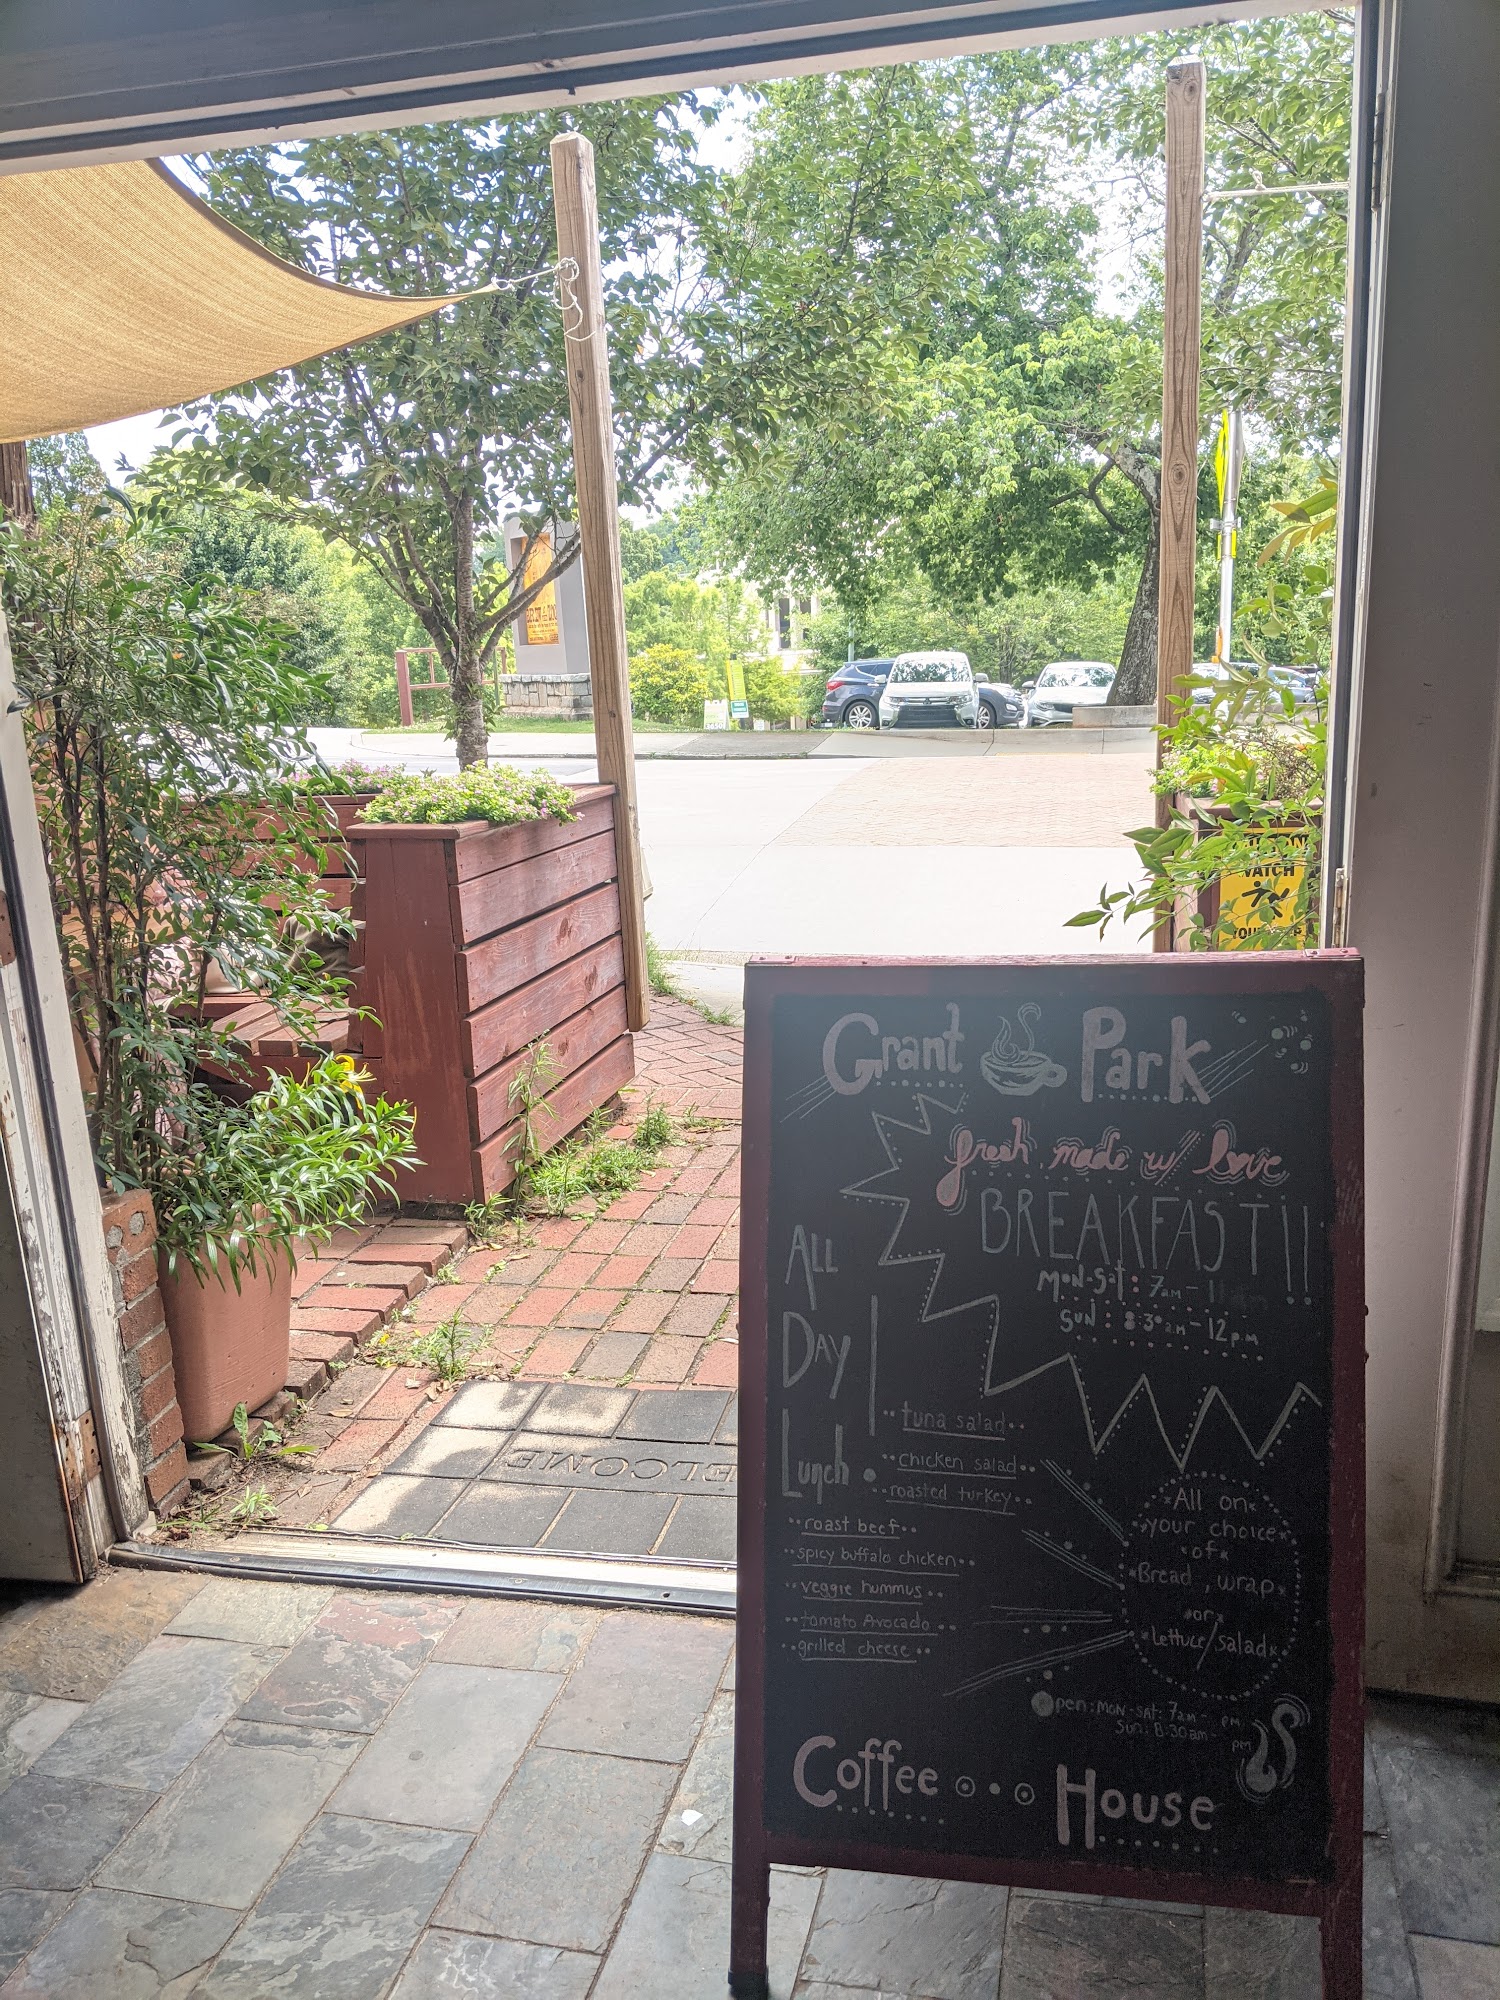 Grant Park
fresh made w/ love
BREAKFAST!!
MON-Sat: 7am - 11am
Sun: 8:30am - 12pm
All
Day
Lunch
tuna salad
chicken salad
roasted turkey
roast beef
spicy buffalo chicken
veggie hummus
tomato Avocado
grilled cheese
All on
your choice
of
Bread, wrap
or
lettuce/salad
Open: MON-SAT: 7am - pm
Sun: 8:30am - pm
Coffee House
WATCH
YOUR STEP
WELCOME